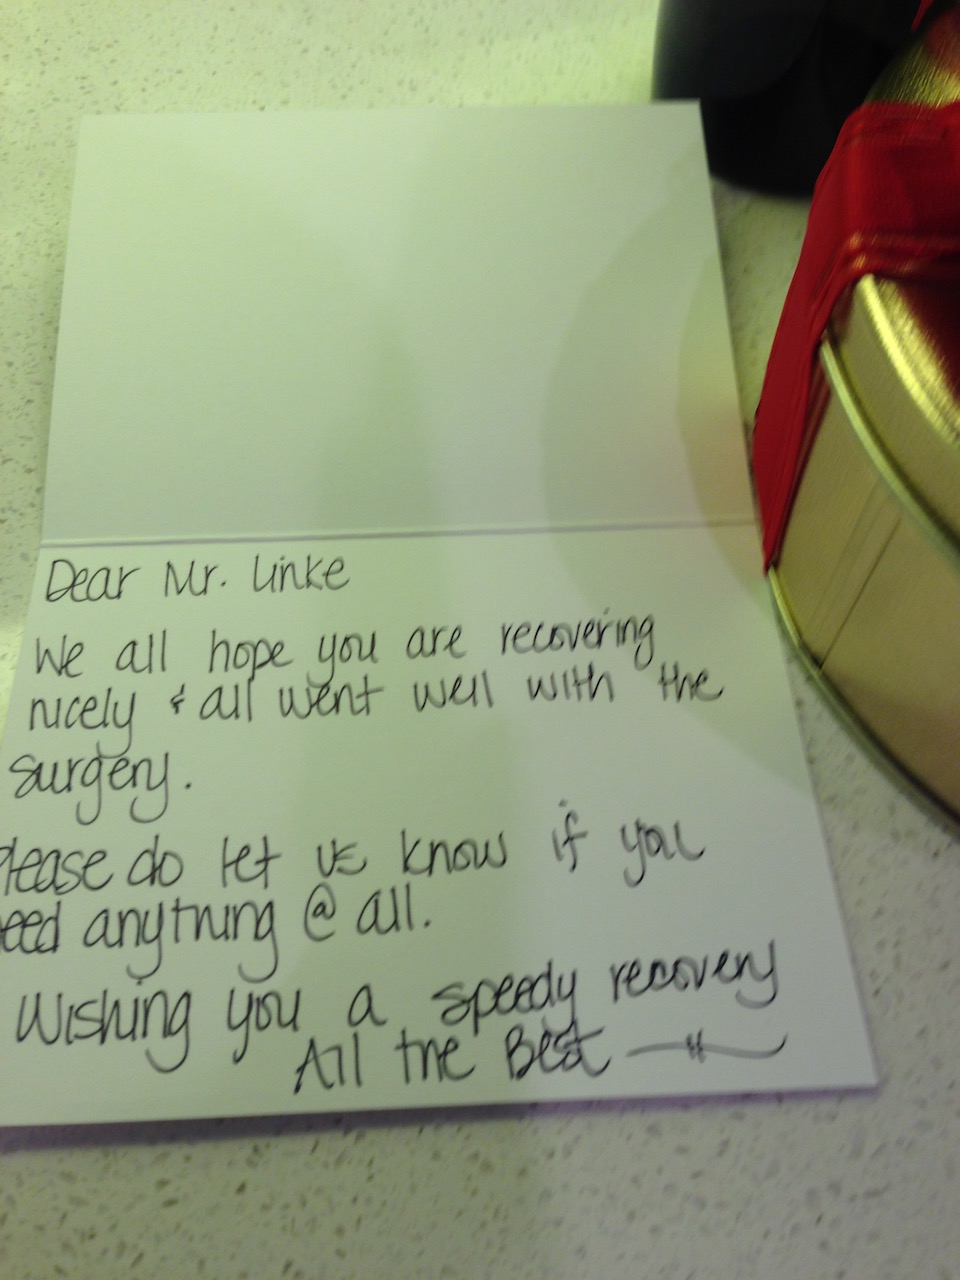 Dear Mr. Linke
We all hope you are recovering
nicely & all went well with the
surgery.
Please do let us know if you
need anything @ all.
Wishing you a speedy recovery
All the Best